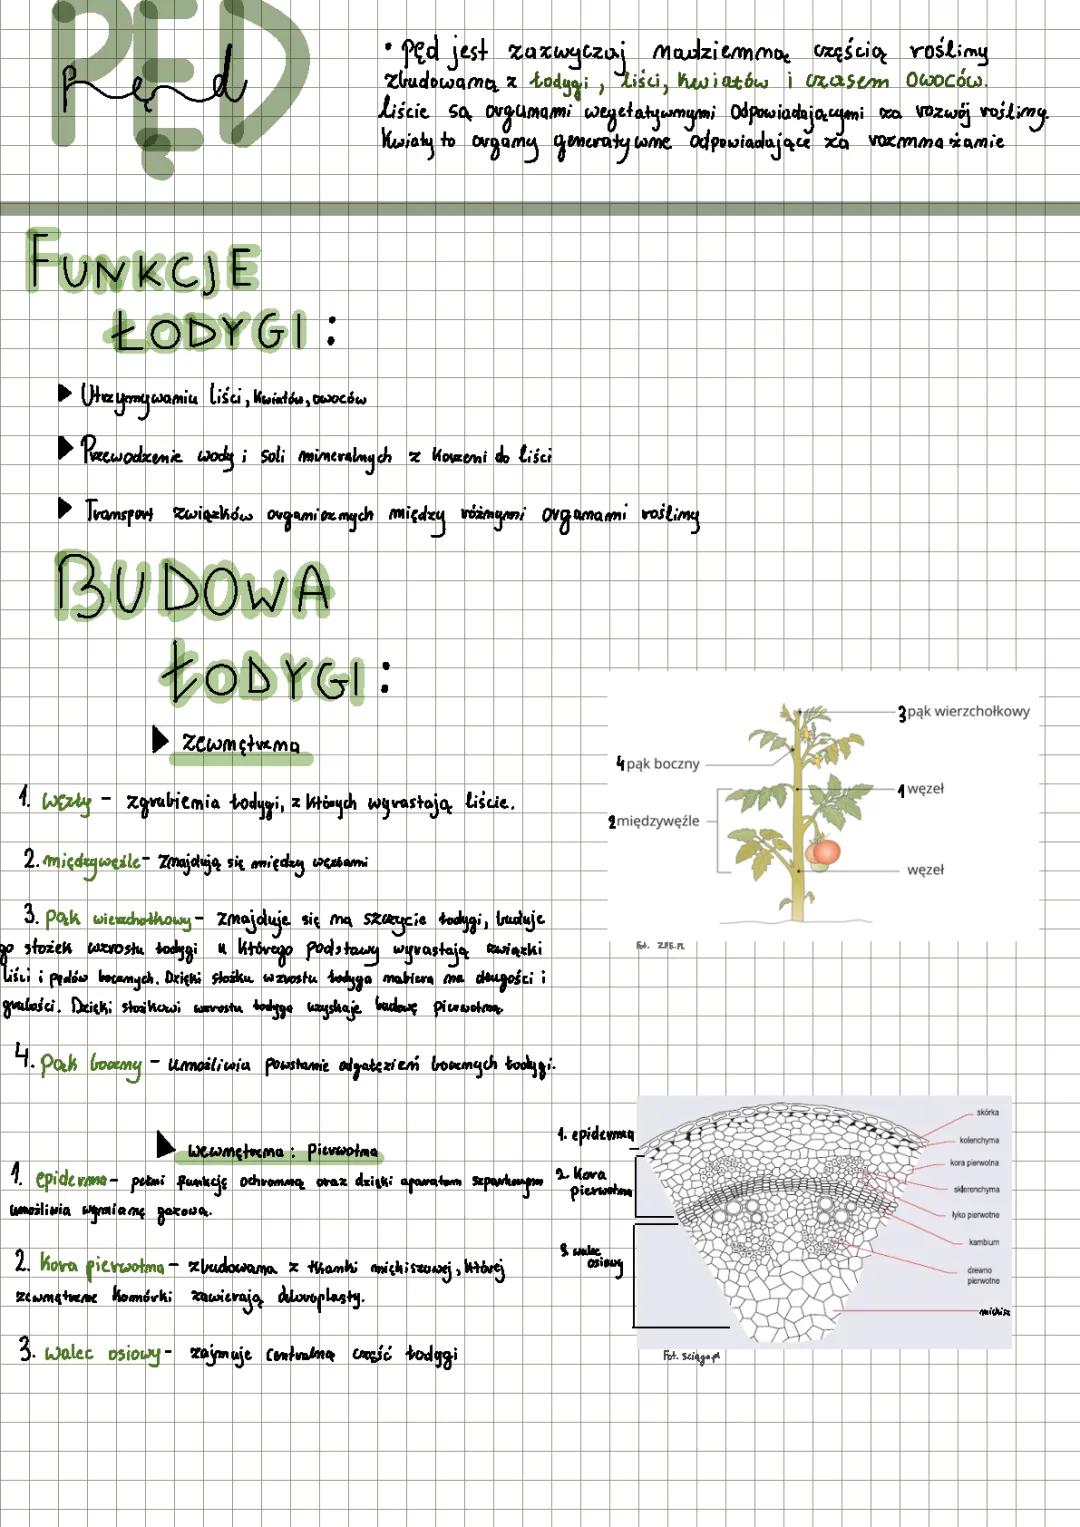 PĘD
pęd
• pęd jest zazwyczaj nadziemną częścią rośliny
zbudowaną z łodygi, liści, kwiatów i czasem owoców.
Liście są organami wegetatywnymi odpowiadającymi za rozwój rośliny.
Kwiaty to organy generatywne odpowiadające za rozmnażanie
FUNKCJE
ŁODYGI:
▶ Utrzymywaniu liści, kwiatów, owoców
▶ Przewodzenie wody i soli mineralnych z korzeni do liści
▶ Transport związków organicznych między różnymi organami rośliny
BUDOWA
ŁODYGI:
▶ zewnętrzna
1. węzły - zgrubienia łodygi, z których wyrastają liście.
2. międzywęźle - znajdują się między węzłami
3. pąk wierzchołkowy - znajduje się na szczycie łodygi, buduje
go stożek wzrostu łodygi u którego podstawy wyrastają związki
liści i pędów bocznych. Dzięki stożku wzrostu łodyga nabiera na długości i
grubości. Dzięki stożkowi wzrostu łodyga uzyskuje budowę pierwotną
4. pąk boczny - umożliwia powstanie odgałęzień bocznych łodygi.
3 pąk wierzchołkowy
4 pąk boczny
1 węzeł
2 międzywęźle
węzeł
fot. ZPE.PL
▶ wewnętrzna: pierwotna
1. epiderma - pełni funkcję ochronną oraz dzięki aparatom szparkowym
umożliwia wymianę gazową.
2. Kora pierwotna - zbudowana z tkanki miękiszowej, której
zewnętrzne komórki zawierają chloroplasty.
3. walec osiowy - zajmuje centralną część łodygi
1. epiderma
2. Kora
pierwotna
3. walec
osiowy
skórka
kolenchyma
kora pierwotna
sklerenchyma
łyko pierwotne
kambium
drewno
pierwotne
miękisz
Fot. sciąga.pl